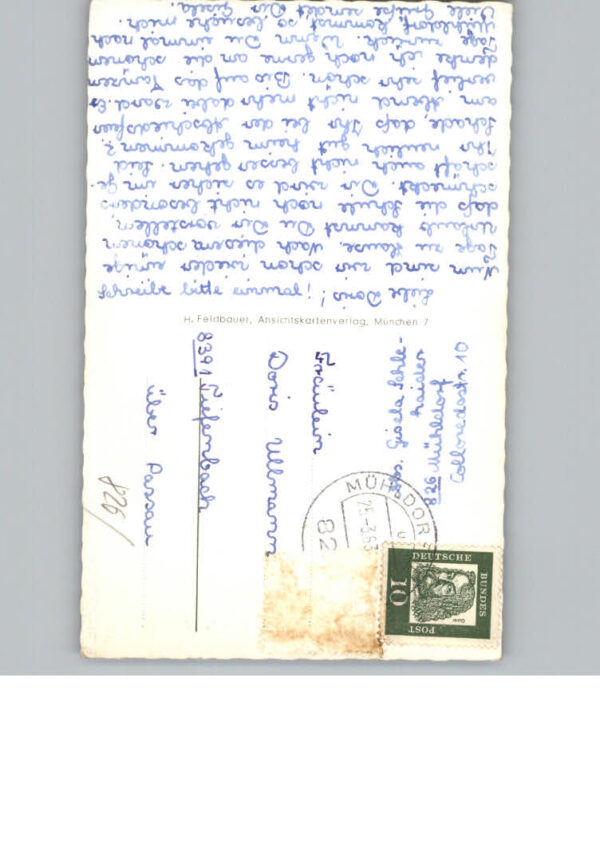 Schreibe bitte einmal!! Liebe Doris
Nun sind wir schon wieder einige
Tage zu Hause. Nach diesem schönen
Urlaub kannst Du Dir vorstellen,
daß die Schule noch nicht besonders
schmeckt. Dir wird es sicher um ge-
schäft auch nicht besser gehen. Seid
Ihr neulich gut heim gekommen?
Schade, daß Ihr bei der Abschiedsfeier
am Abend nicht mehr dabei ward. Es
verlief sehr schön. Bis auf das Tanzen
denke ich noch gerne an die schönen
Tage zurück. Wenn Du einmal nach
Mühldorf kommst so besuche mich
Viele Grüße sendet Dir Gisela.
H. Feldbauer, Ansichtskartenverlag, München 7
Abs. Gisela Schle-
haider
826 Mühldorf
Colloredostr. 10
Fräulein
Doris Ullmann
8391 Tiefenbach
über Passau
826/
MÜHLDORF
25.-3.63
82
DEUTSCHE
BUNDES
POST
10